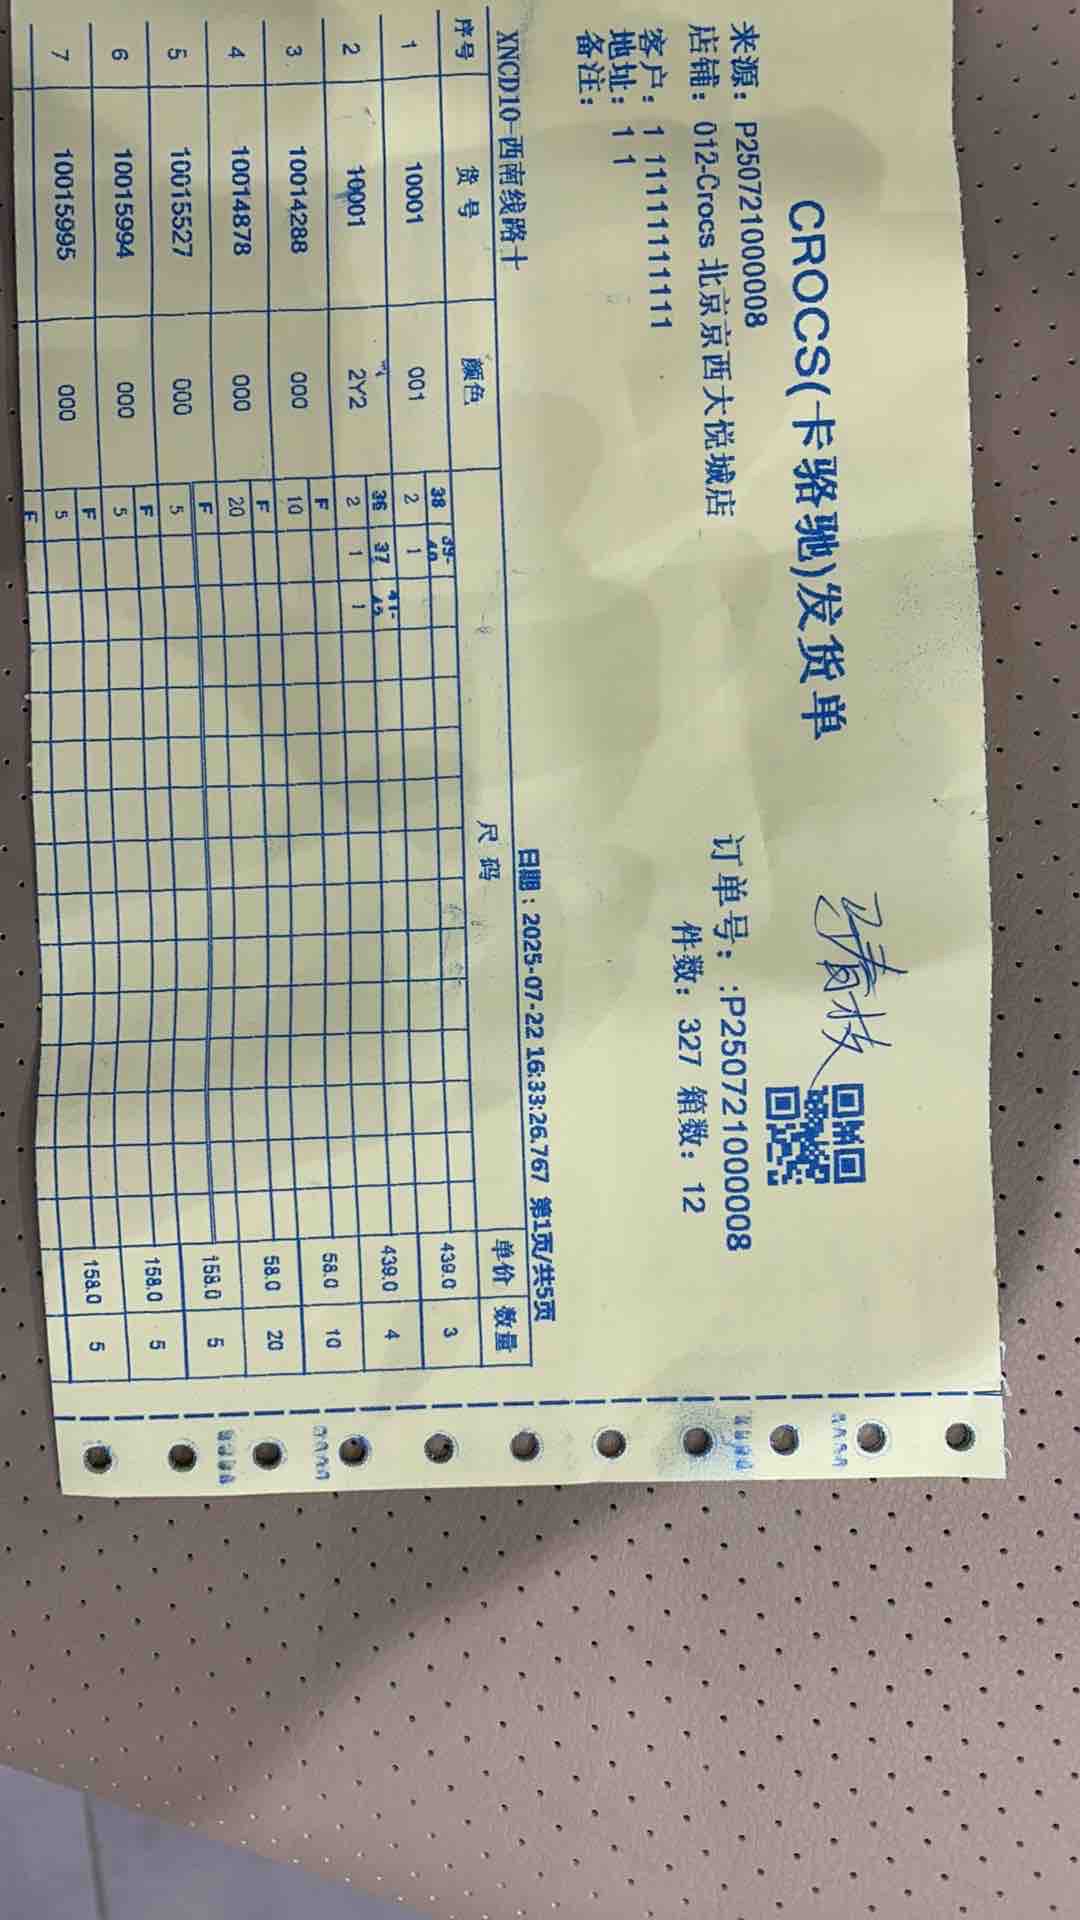 CROCS(卡骆驰)发货单
来源: P250721000008 订单号: :P250721000008
店铺: 012-Crocs 北京京西大悦城店 件数: 327 箱数: 12
客户: 1 11111111111
地址: 1 1
备注:
日期: 2025-07-22 16:33:26.767 第1页/共5页
XNCD10-西南线路十
序号 货号 颜色 尺码 单价 数量
38 39-40
1 10001 001 2 1 439.0 3
36 37 41-42
2 10001 2Y2 2 1 1 439.0 4
F
3 10014288 000 10 58.0 10
F
4 10014878 000 20 58.0 20
F
5 10015527 000 5 158.0 5
F
6 10015994 000 5 158.0 5
F
7 10015995 000 5 158.0 5
F